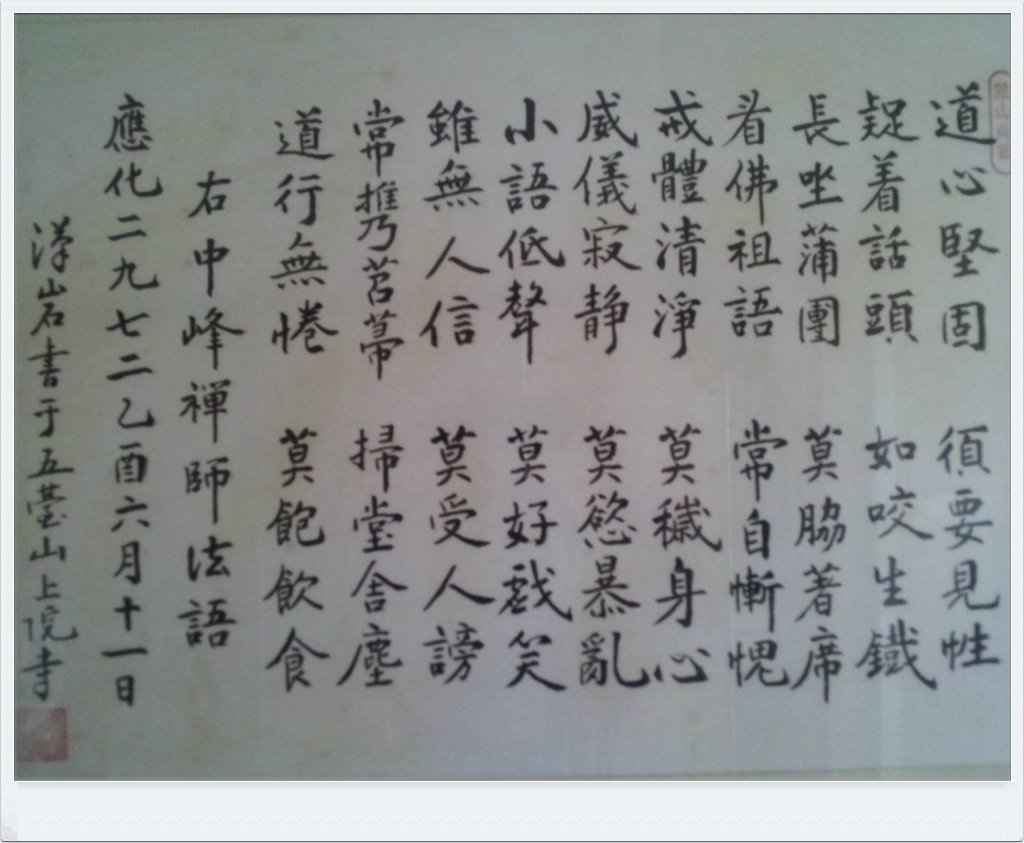 道心堅固 須要見性
疑着話頭 如咬生鐵
長坐蒲團 莫脇著席
看佛祖語 常自慚愧
戒體清淨 莫穢身心
威儀寂静 莫慾暴亂
小語低聲 莫好戲笑
雖無人信 莫受人謗
常携苕箒 掃堂舍塵
道行無惓 莫飽飲食
右中峰禅師法語
應化二九七二乙酉六月十一日
漢岩書于五臺山上院寺